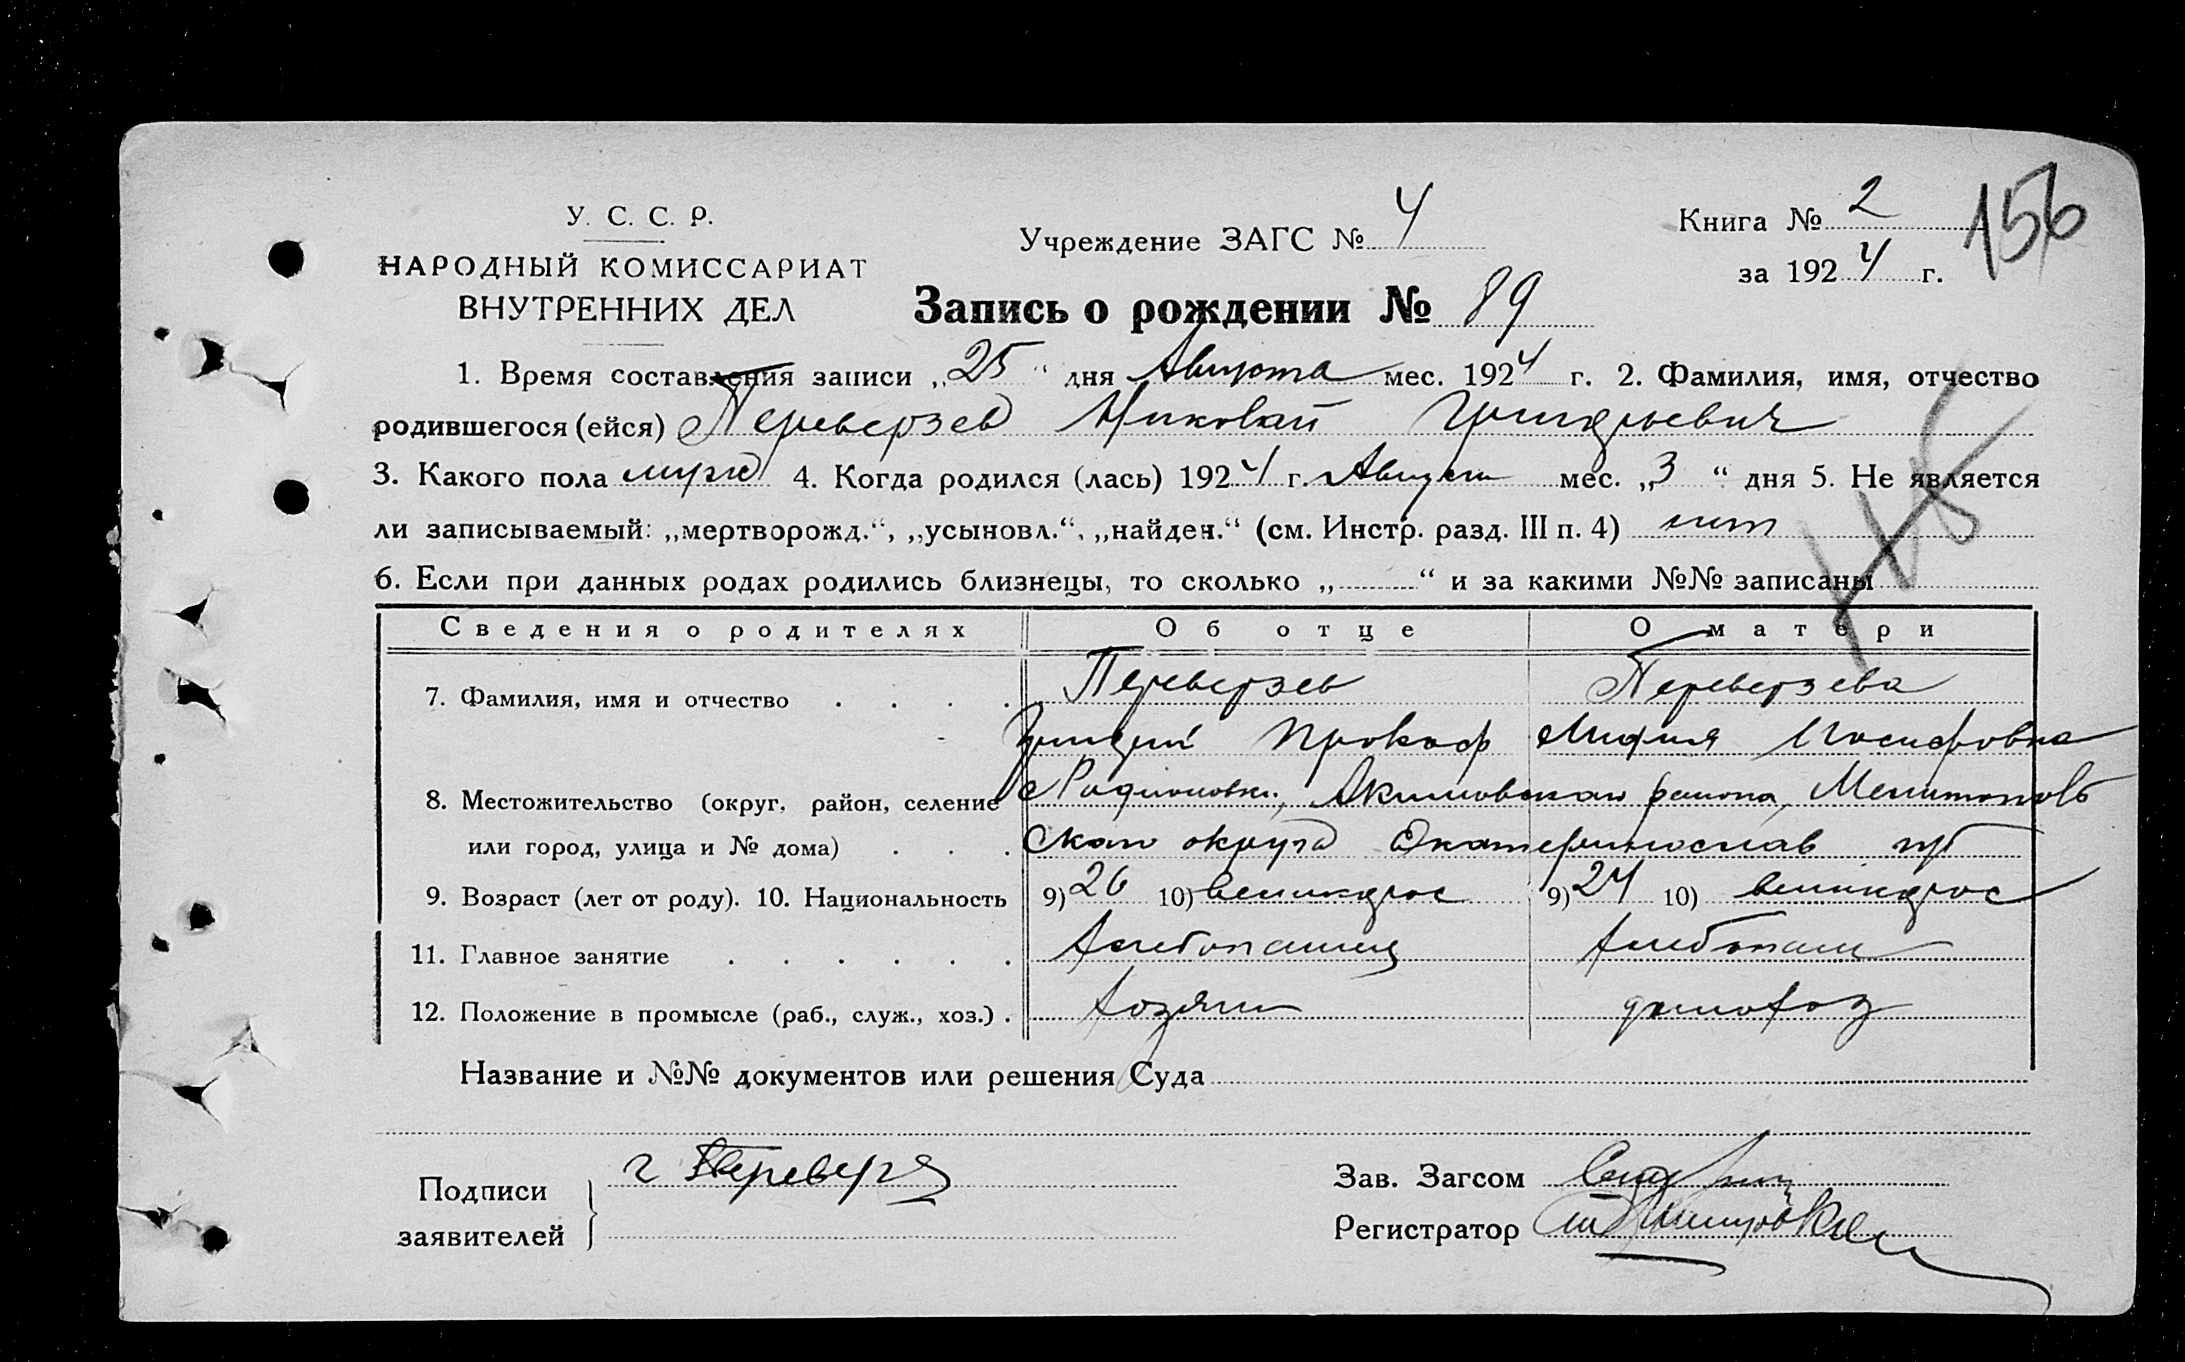 У. С. С. Р.
НАРОДНЫЙ КОМИССАРИАТ
ВНУТРЕННИХ ДЕЛ
Учреждение ЗАГС № 4
Книга № 2
156
за 1924 г.
Запись о рождении № 89
1. Время составления записи „25“ дня Августа мес. 1924 г. 2. Фамилия, имя, отчество
родившегося (ейся) Переверзев Николай Григорьевич
3. Какого пола муж 4. Когда родился (лась) 1924 г. Август мес. „3“ дня 5. Не является
ли записываемый: „мертворожд.“, „усыновл.“, „найден.“ (см. Инстр. разд. III п. 4) нет
6. Если при данных родах родились близнецы, то сколько „ “ и за какими №№ записаны
Сведения о родителях Об отце О матери
7. Фамилия, имя и отчество Переверзев Переверзева
Григорий Прокоф Мария Иосифовна
8. Местожительство (округ, район, селение Родионовка, Акимовского района, Мелитополь
или город, улица и № дома) ского округа Екатеринослав губ
9. Возраст (лет от роду). 10. Национальность 9) 26 10) великорос 9) 24 10) великорос
11. Главное занятие хлебопашец хлебопаш
12. Положение в промысле (раб., служ., хоз.) хозяин домохоз
Название и №№ документов или решения Суда
Подписи заявителей
Г Переверзев
Зав. Загсом
Регистратор